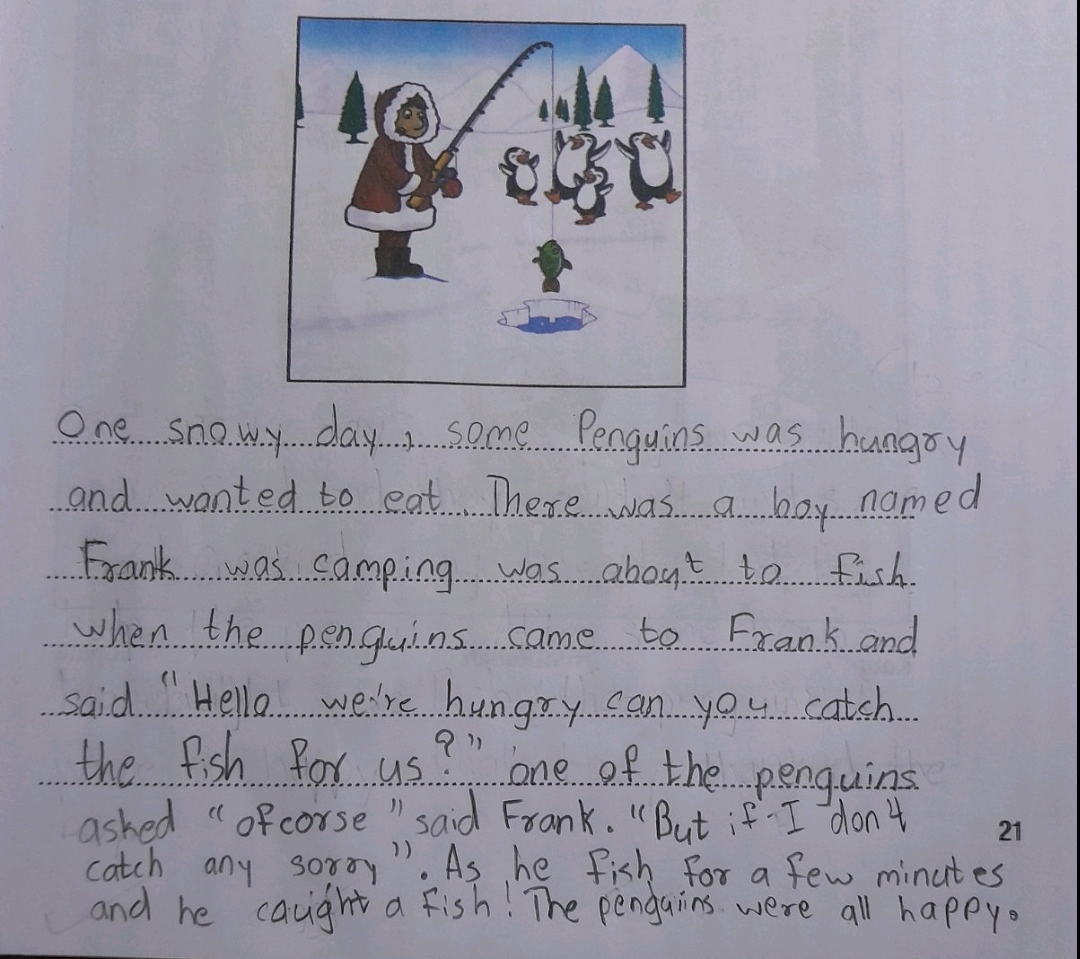 One snowy day, some Penguins was hungry
and wanted to eat. There was a boy named
Frank was camping was about to fish
when the penguins came to Frank and
said "Hello we're hungry can you catch
the fish for us?" one of the penguins
asked "ofcorse" said Frank. "But if I don't
21
catch any sorry". As he fish for a few minutes
and he caught a fish! The penguins were all happy.